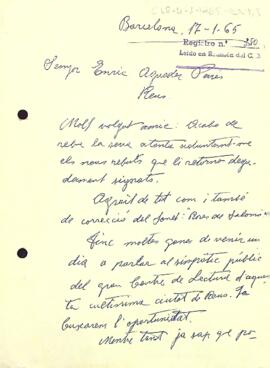 Barcelona, 17-1-65
Registro n.º 350
Leído en Sesión del C. D.
Senyor Enric Aguadé Parés
Reus
Molt volgut amic: Acabo de
rebre la seva atenta voluntant-me
els nous rebuts que li retorno degu-
dament signats.
Agraït de tot com i també
de correcció del Sonet "Bres de Salomó"
Tinc moltes ganes de venir un
dia a parlar al simpàtic públic
del gran Centre de Lectura d'aques-
ta cultíssima ciutat de Reus. Ja
buscarem l'oportunitat.
Mentre tant ja sap que po-